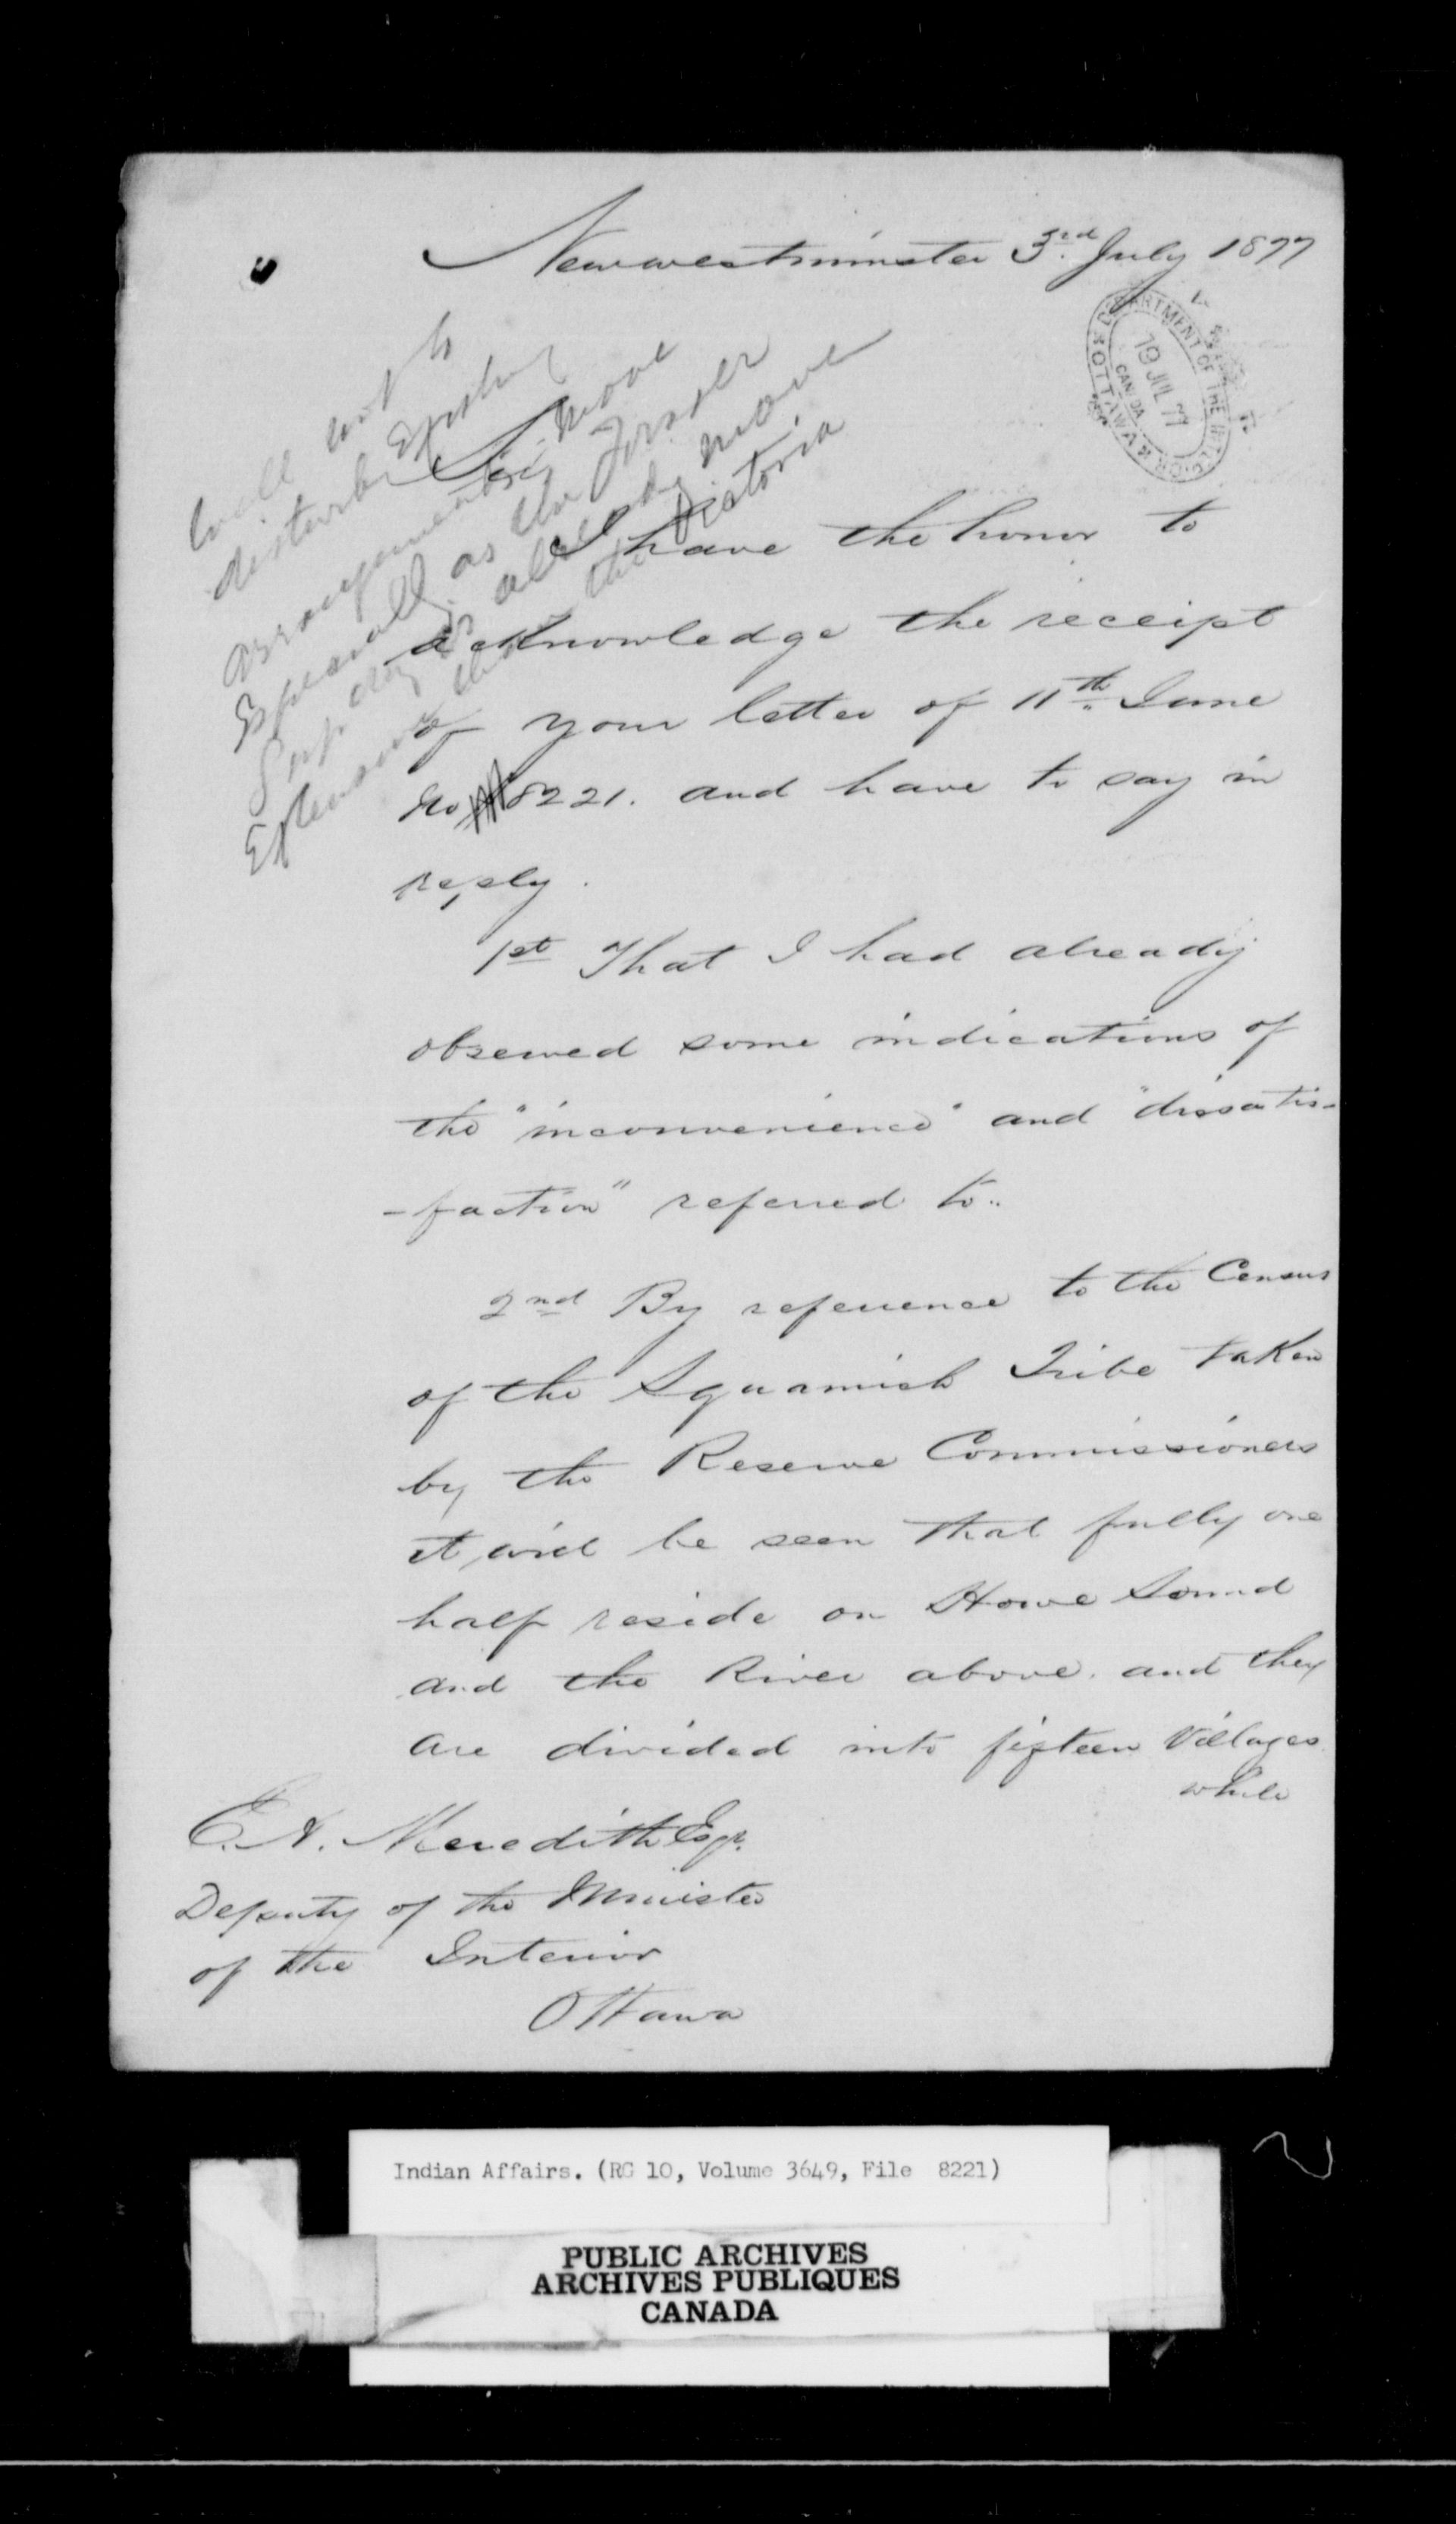 Newwestminster 3rd July 1877
DEPARTMENT OF THE INTERIOR
19 JUL 77
CANADA
OTTAWA
Will not to
disturb Existing
arrangements more
Especially as the Fraser
Sup dcy is already more
Extensive than the Victoria
Sir,
I have the honor to
acknowledge the receipt
of your letter of 11th June
No 8221. and have to say in
reply.
1st That I had already
observed some indications of
the "inconvenience" and "dissatis-
-faction" referred to..
2nd By reference to the Census
of the Squamish Tribe taken
by the Reserve Commissioners
it will be seen that fully one
half reside on Howe Sound
and the River above. and they
are divided into fifteen Villages
while
E. A. Meredith Esqr.
Deputy of the Minister
of the Interior
Ottawa
Indian Affairs. (RG 10, Volume 3649, File 8221)
PUBLIC ARCHIVES
ARCHIVES PUBLIQUES
CANADA